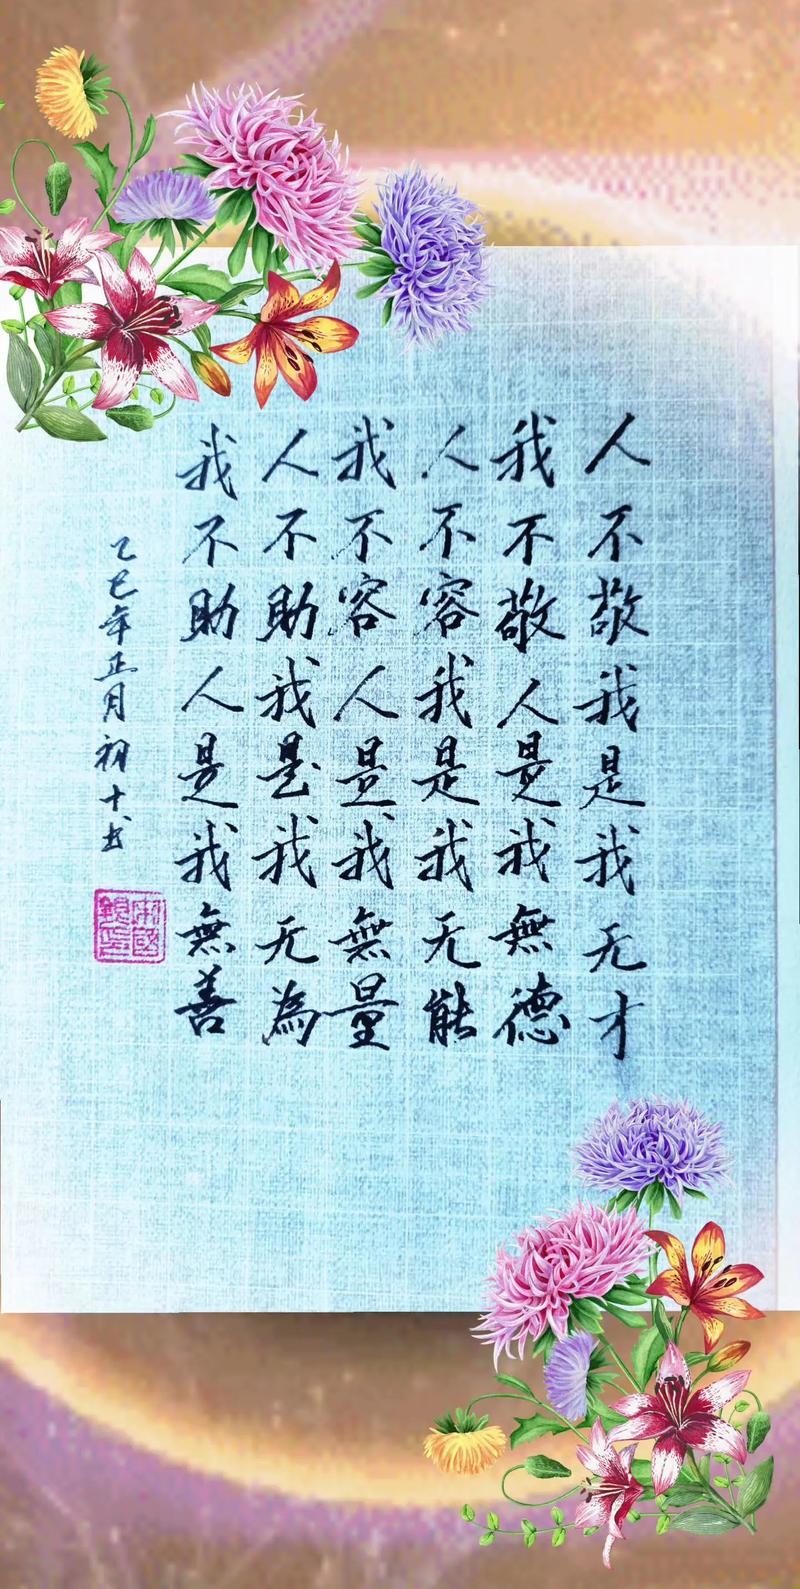 人不敬我是我无才
我不敬人是我無德
人不容我是我无能
我不容人是我無量
人不助我是我无為
我不助人是我無善
乙巳年正月初十书